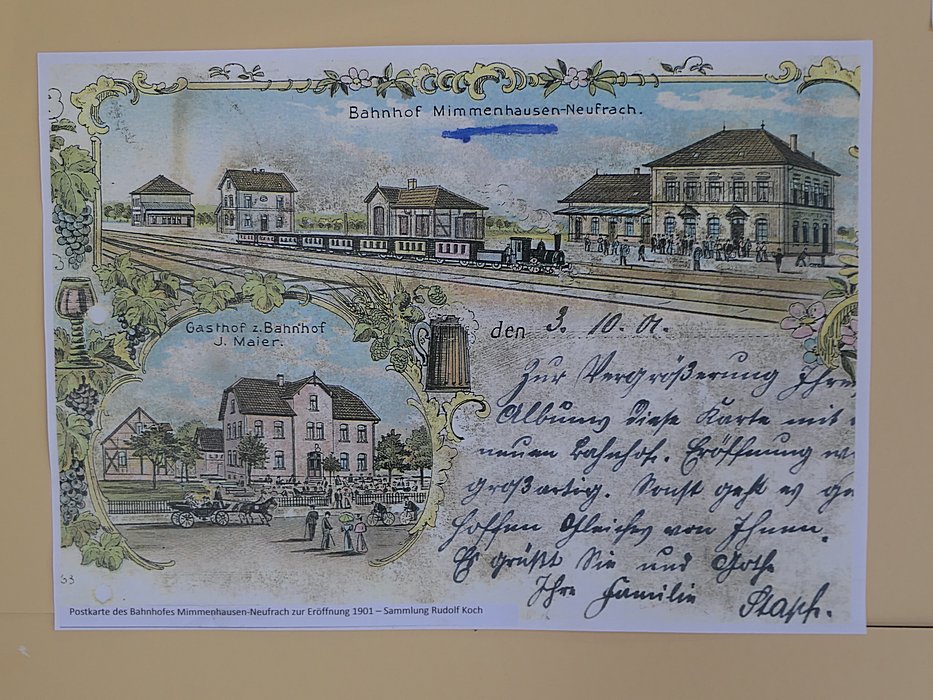 Bahnhof Mimmenhausen-Neufrach.
Gasthof z. Bahnhof
J. Maier.
den 3. 10. 01.
Zur Vergrößerung Ihre
Albums diese Karte mit
neuen Bahnhof. Eröffnung w
großartig. Sonst geht es ge
hoffen Gleiches von Ihnen.
Es grüßt Sie und
Ihre Familie Stapf.
Postkarte des Bahnhofes Mimmenhausen-Neufrach zur Eröffnung 1901 – Sammlung Rudolf Koch